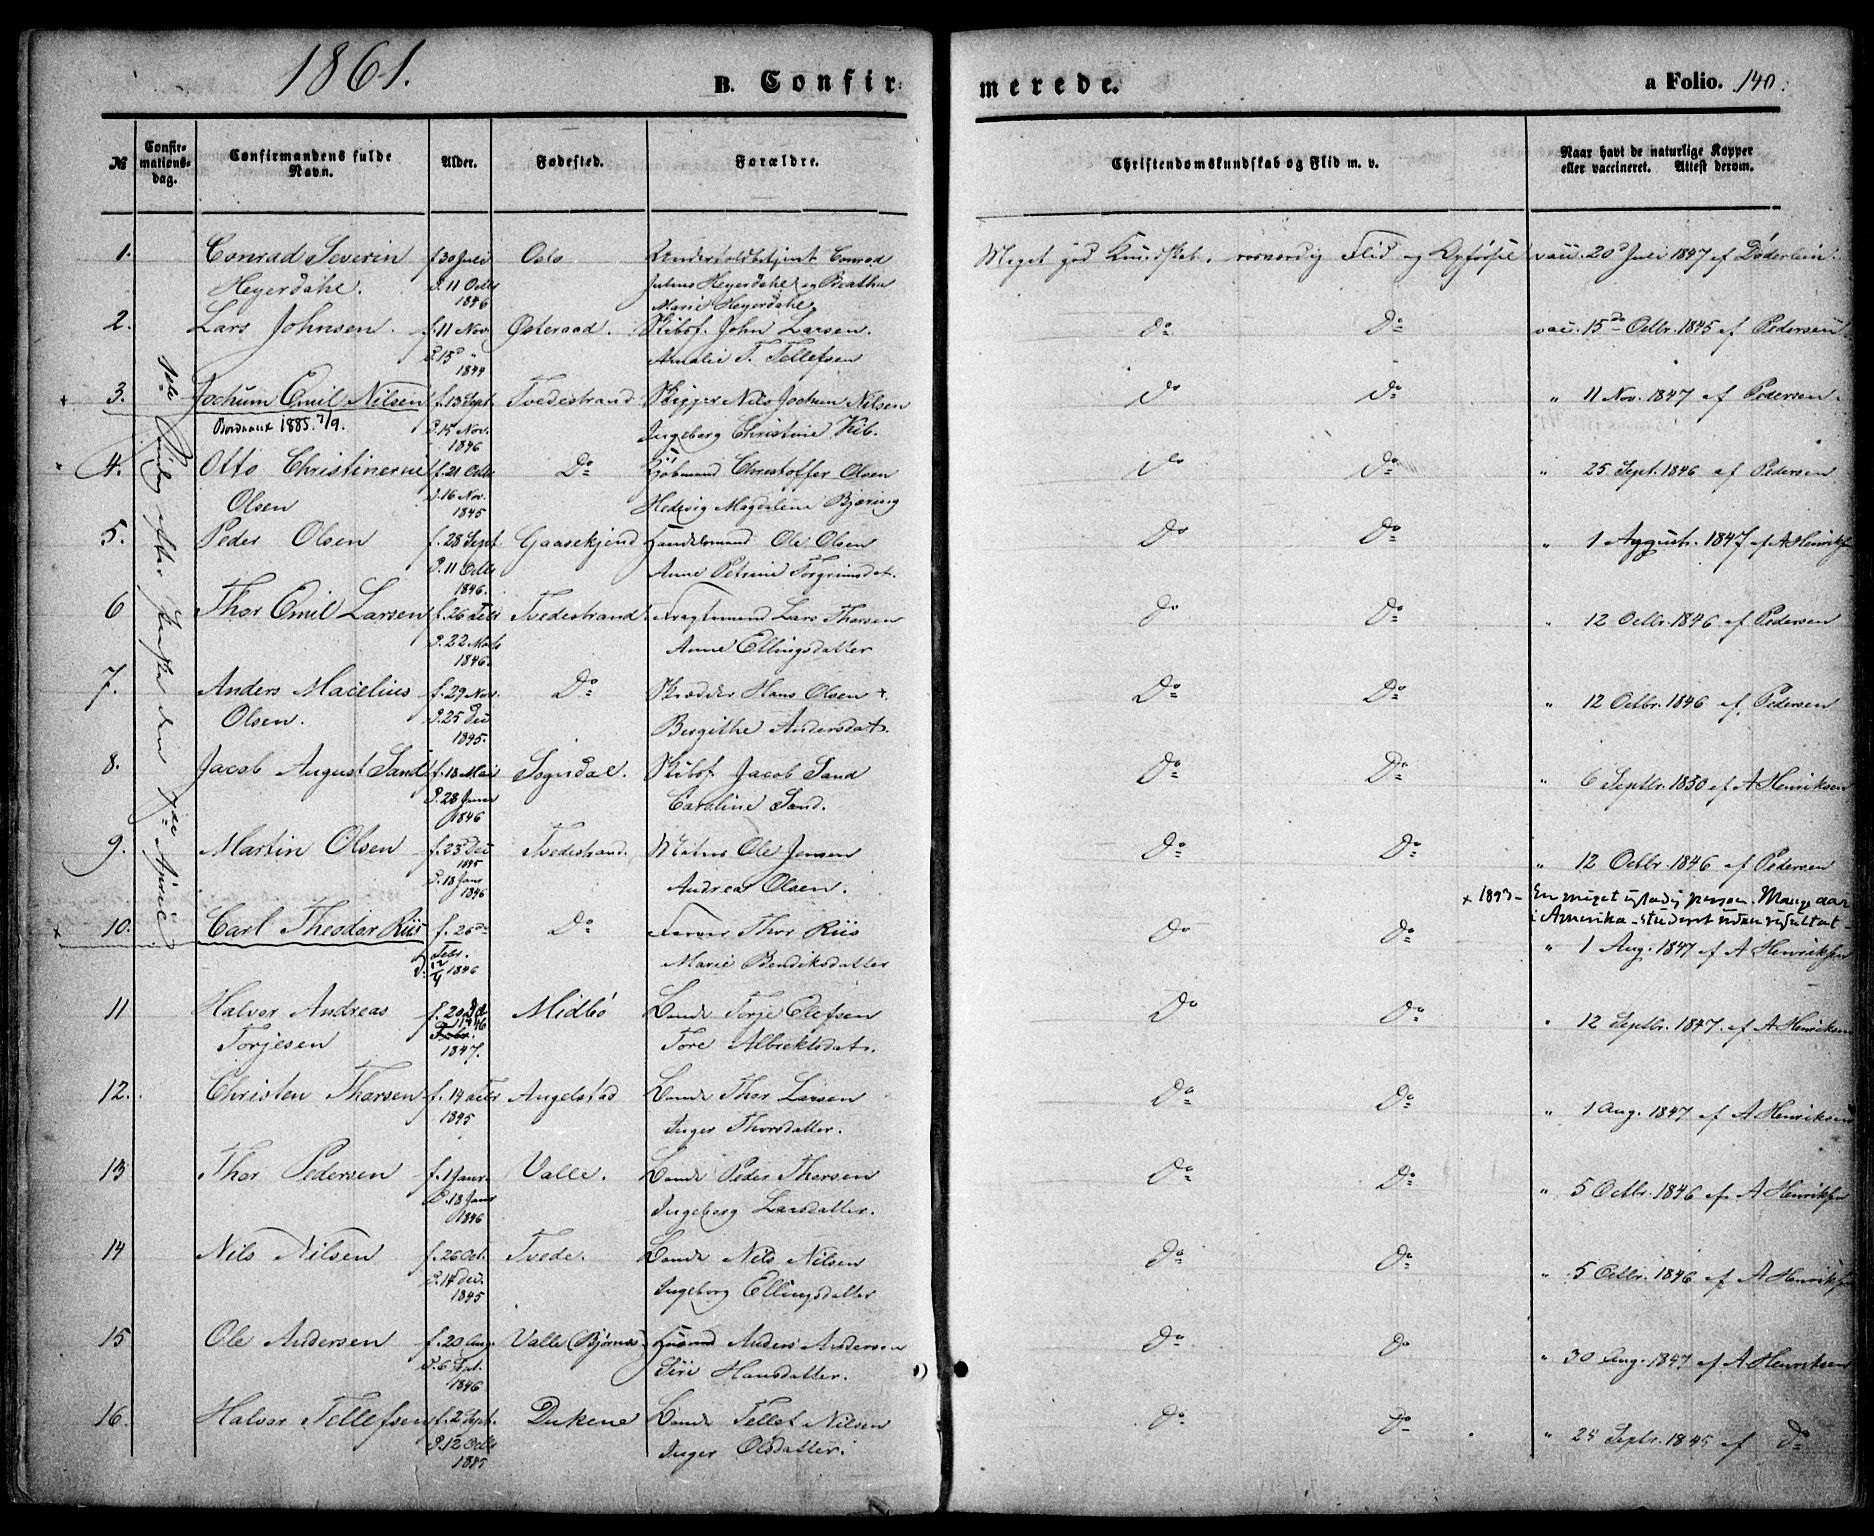 1861.
B. Confirmerede.
a Folio. 140.
№
Confirmationsdag.
Confirmandens fulde Navn.
Alder.
Fødested.
Forældre.
Christendomskundskab og Flid m. v.
Naar havt de naturlige Kopper eller vaccineret. Attest derom.
1ste Søndag efter Paaske den 7de April
1. Conrad Severin f. 30 Juli Oslo Conrad Meget god Kundskab, Flid og Opførsel vacc. 20 Juli 1847 af Døderlein.
Heyerdahl. D. 11 Octb Julius Heyerdahl og Beathe
1846 Marie Heyerdahl
2. Lars Johnsen. f. 11 Nov. Østeraad. Skibsf. John Larsen. Do Do vacc. 15de Octbr. 1845 af Pedersen
D. 15 " Amalie T. Tellefsen
1844
3. Jochum Emil Nilsen f. 13 Sept. Tvedestrand Skipper Nils Jochum Nilsen Do Do " 11 Nov. 1847 af Pedersen.
Bordeaux 1885. 7/9. D. 15 Nov. Ingeborg Christine
1846
4. Otto f. 21 Octb Do Kjøbmand Christoffer Olsen Do Do " 25 Sept. 1846 af Pedersen
Olsen D. 16 Nov. Hedevig Magdalene Bjøring
1845
5. Peder Olsen f. 28 Sept. Gaasekjend Handelsmand Ole Olsen Do Do " 1 August. 1847 af A Henriksen
D. 11 Octb Anne Petrine Torgrimsdat.
1846.
6 Thor Emil Larsen f. 26 Febr Tvedestrand Fragtemand Lars Thorsen Do Do " 12 Octbr. 1846 af Pedersen
D. 22 Marts Anne Ellingsdatter
1846.
7. Anders Macelius f. 29 Nov. Do Skrædder Hans Olsen + Do Do " 12 Octbr. 1846 af Pedersen
Olsen. D. 25 Dec Bergithe Andersdat.
1845.
8. Jacob August Sand f. 18 Mai Sogndal. Skibsf. Jacob Sand Do Do " 6 Septbr. 1850 af A Henriksen
D. 28 Juni Caroline Sand.
1846
9. Martin Olsen f. 23 Dec Tvedestrand. Matros Ole Jensen Do Do " 12 Octbr. 1846 af Pedersen
1845
D. 18 Janr Andrea Olsen.
1846
x 1893 - En meget person. Mange aar
i Amerika - studeret uden resultat -
10. Carl Theodor Riis f. 26de Do Farver Thor Riis Do Do " 1 Aug. 1847 af A Henriksen
Febr. Marie Bendiksdatter
1846
11 Halvor Andreas f. 20 Midbö Bonde Torje Olefsen Do Do " 12 Septbr. 1847. af A Henriksen
Torjesen 1847. Tore Albrektsdat.
12. Christen Thorsen f. 14 Octbr Angelstad Bonde Thor Larsen Do Do " 1 Aug. 1847 af A Henriksen
1845 Inger Thorsdatter.
13 Thor Pedersen f. 1 Janr. Valle. Bonde Peder Thorsen Do Do " 5 Octbr. 1846 af A Henriksen
D. 18 Janr Ingeborg Larsdatter.
1846
14 Nils Nilsen f. 26 Oct. Tvede. Bonde Nils Nilsen Do Do " 5 Octbr. 1846 af A Henriksen
D. 14 Dec. Ingeborg Ellingsdatter
1845
15 Ole Andersen f. 20 Aug. Valle (Bjørnes) Husmd Anders Andersen Do Do " 30 Aug. 1847 af A Henriksen
D. 6 Sept. Siri Hansdatter.
1846
16. Halvor Tellefsen f. 2 Sept. Dukene Bonde Tellef Nilsen Do Do " 25 Septbr. 1845 af Do
D. 12 Octb Inger Olsdatter.
1845